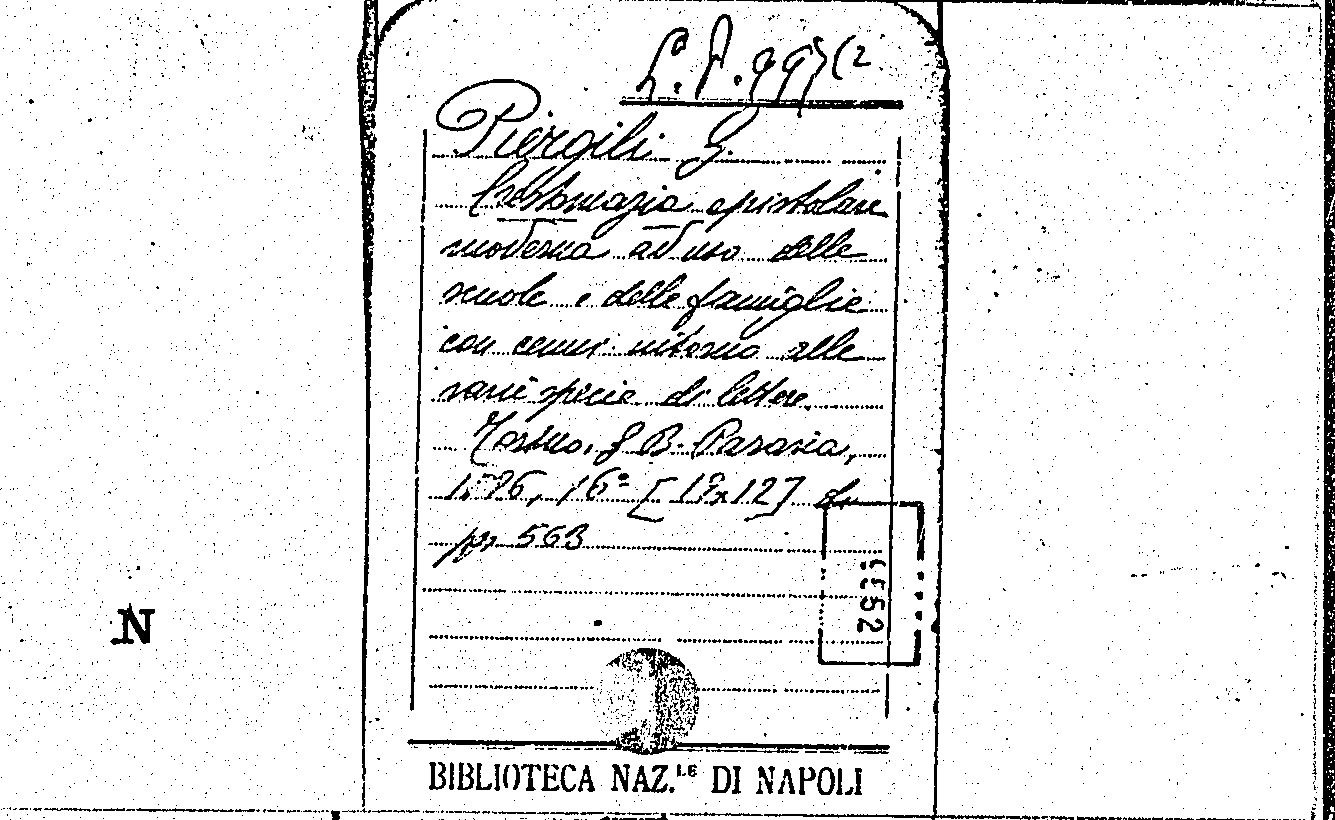 L. P.
Piergili G.
Crestomazia epistolare
moderna ad uso delle
scuole e delle famiglie
con cenni intorno alle
varie specie di lettere
Torino, G B. Paravia,
16º [19x12] di
pp 563
N
BIBLIOTECA NAZ.LE DI NAPOLI